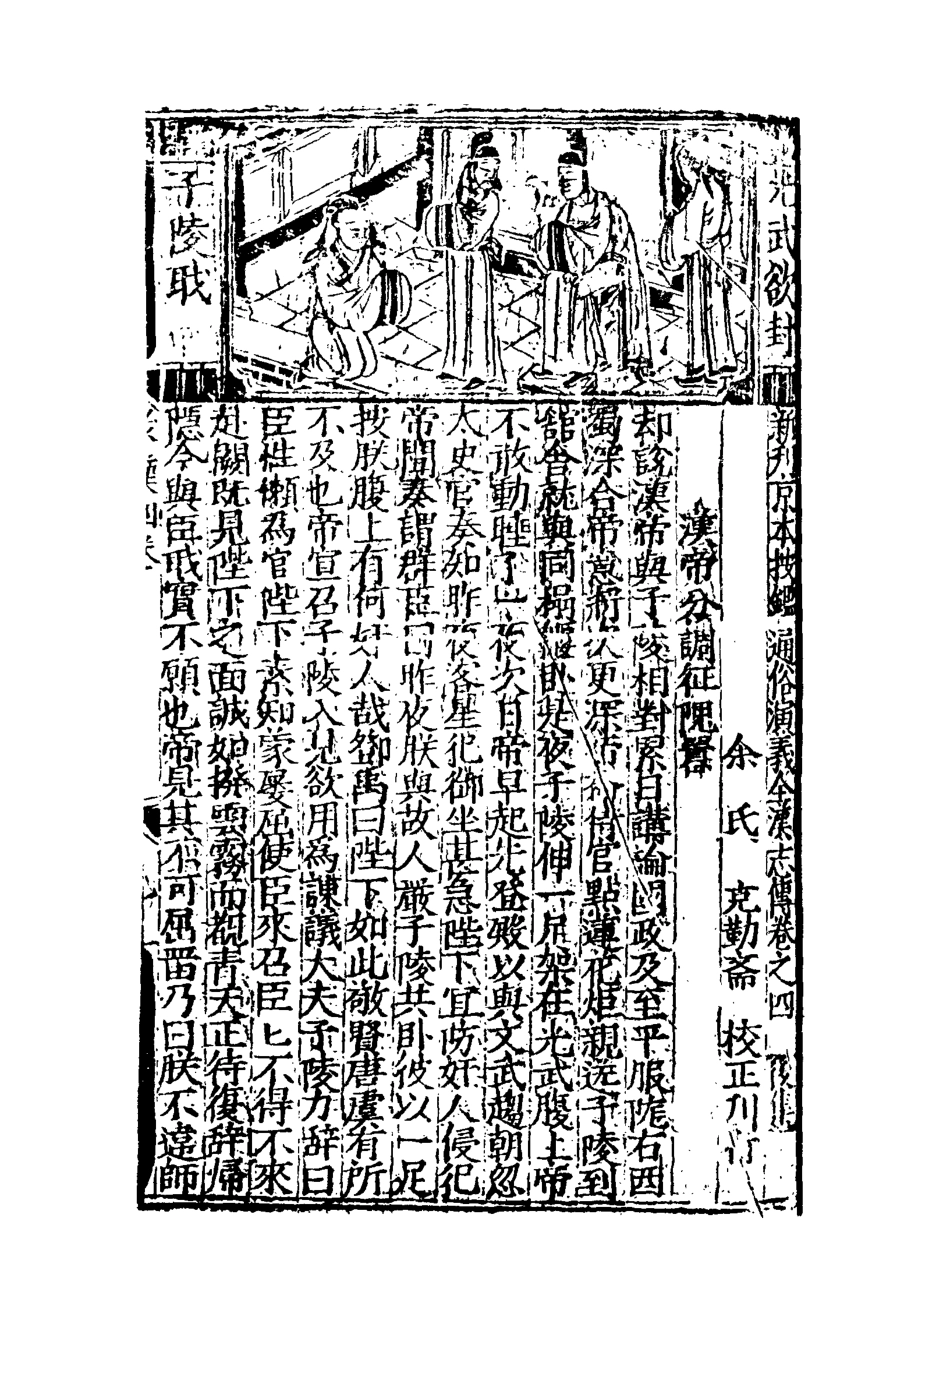 光武欲封
子陵職
新刋京本按鑑通俗演義全漢志傳卷之四 後集
余氏 克勤斎 校正刋行
漢帝分調征隗囂
却說漢帝與子陵相對累日講論國政及至平服隴右西
蜀深合帝意漸次更深帝令侍官點蓮花炬親送子陵到
舘舍就與同榻而卧是夜子陵伸一足架在光武腹上帝
不敢動睡了一夜次日帝早起步登殿以與文武趨朝忽
太史官奏知昨夜客星犯御坐甚急陛下宜防奸人侵犯
帝聞奏謂群臣曰昨夜朕與故人嚴子陵共卧彼以一足
按朕腹上有何奸人哉鄧禹曰陛下如此敬賢唐虞有所
不及也帝宣召子陵入見欲用為諫議大夫子陵力辞曰
臣性懒為官陛下素知蒙屡屈使臣來召臣匕不得不來
赴闕既見陛下之面誠如撥雲霧而覩青天正待復辞歸
隠今與臣戒實不願也帝見其不可屈畱乃曰朕不違師